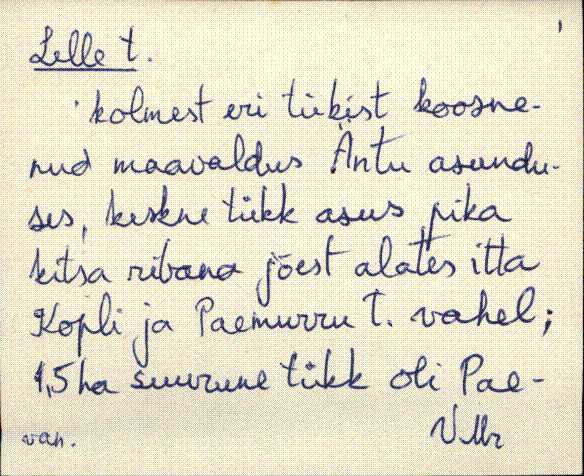 Lelle t.
kolmest eri tükist koosne-
nud maavaldus Äntu asundu-
ses, keskne tükk asus pika
kitsa ribana jõest alates itta
Kopli ja Paemurru t. vahel;
1,5 ha suurune tükk oli Pae-
van. VMr